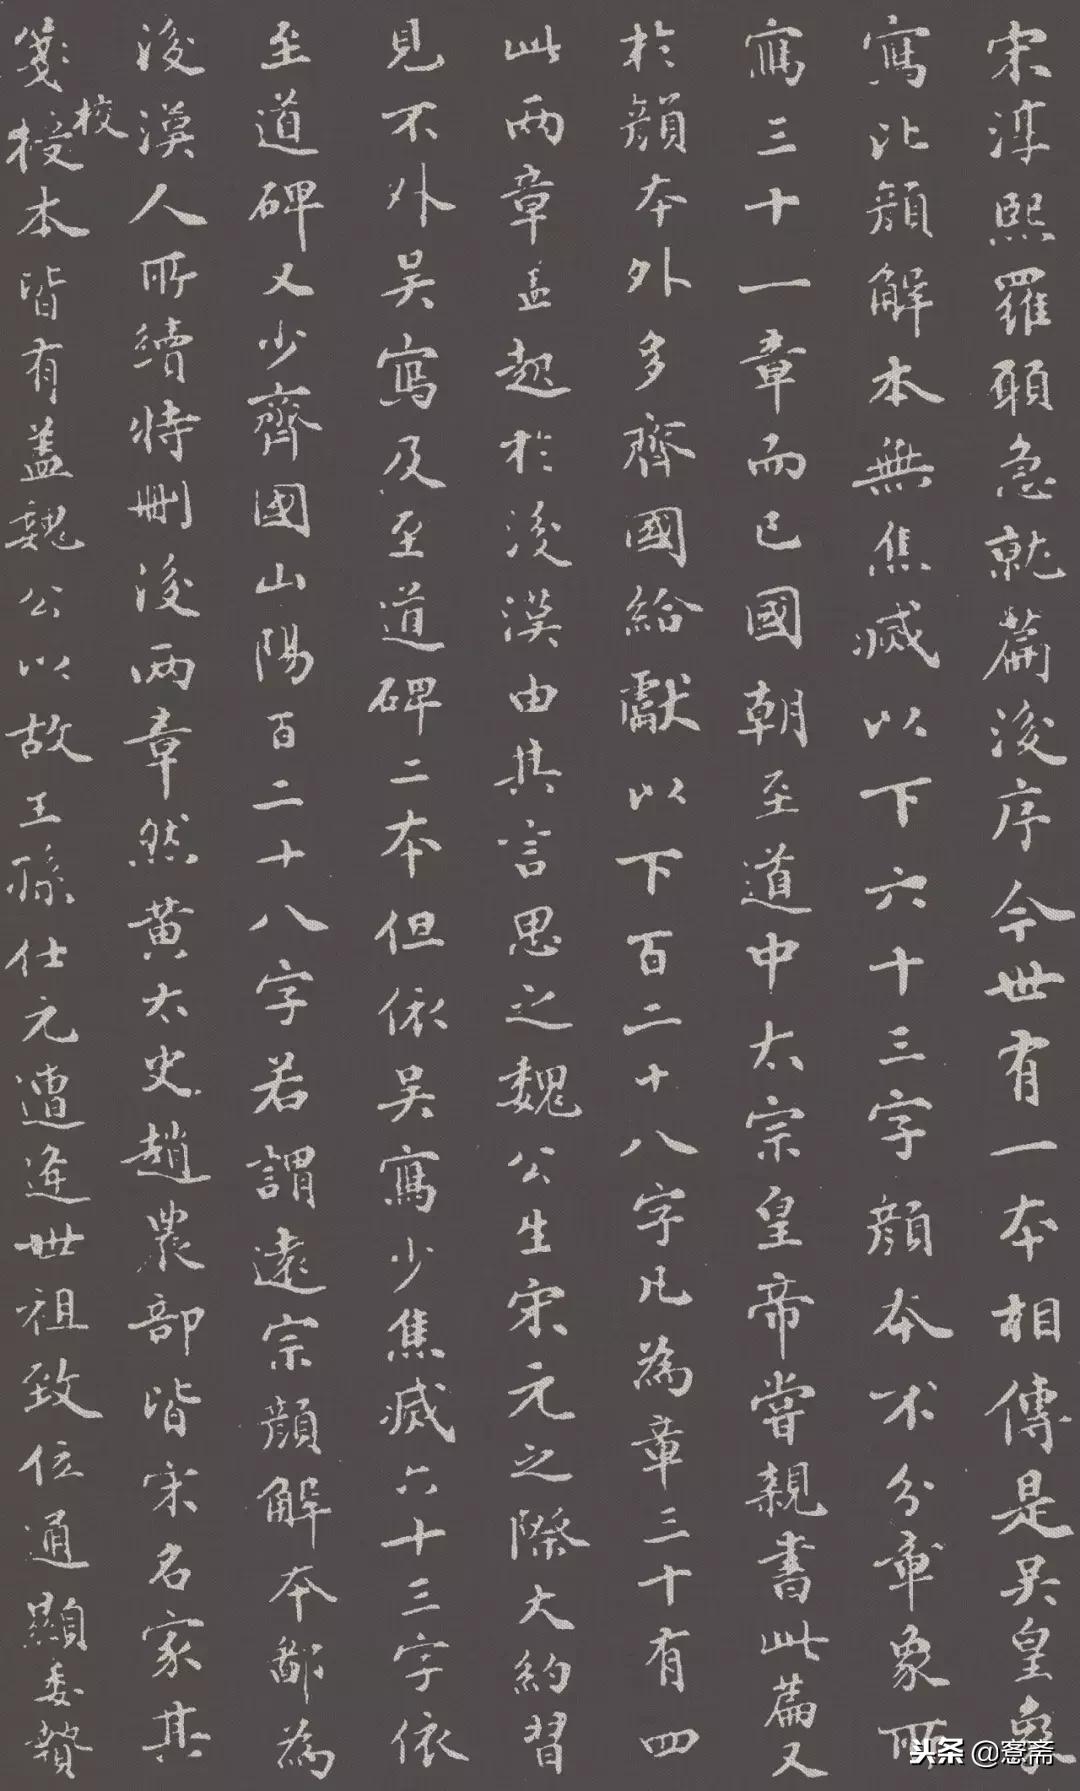 宋淳熙羅願急就篇後序今世有一本相傳是吳皇象
寫比顏解本無焦滅以下六十三字顏本不分章象所
寫三十一章而已國朝至道中太宗皇帝嘗親書此篇又
於顏本外多齊國給獻以下百二十八字凡為章三十有四
此兩章盖起於後漢由其言思之魏公生宋元之際大約習
見不外吳寫及至道碑二本但依吳寫少焦滅六十三字依
至道碑又少齊國山陽百二十八字若謂遠宗顏解本鄙為
後漢人所續特刪後兩章然黃太史趙農部皆宋名家其
箋授本皆有盖魏公以故王孫仕元遭逢世祖致位通顯委贄
校
头条 @窓斋